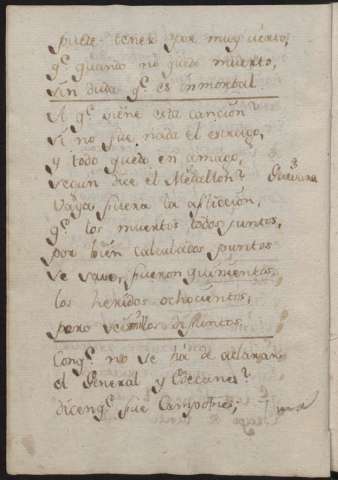 puede tener por muy cierto,
qᵉ quando no quedó muerto,
sin duda qᵉ es inmortal.
A qᵉ viene esta canción?
si no fue nada el estrago,
y todo quedó en amago,
segun dice el Medallon?
Vaya fuera la aflicción,
qᵉ los muertos todos juntos,
por bien calculados puntos
se save, fueron quinientos,
los heridos ochocientos,
pero seis mil los difuntos,
Conqᵉ no se há de
el General y Edecanes?
dicen qᵉ fue